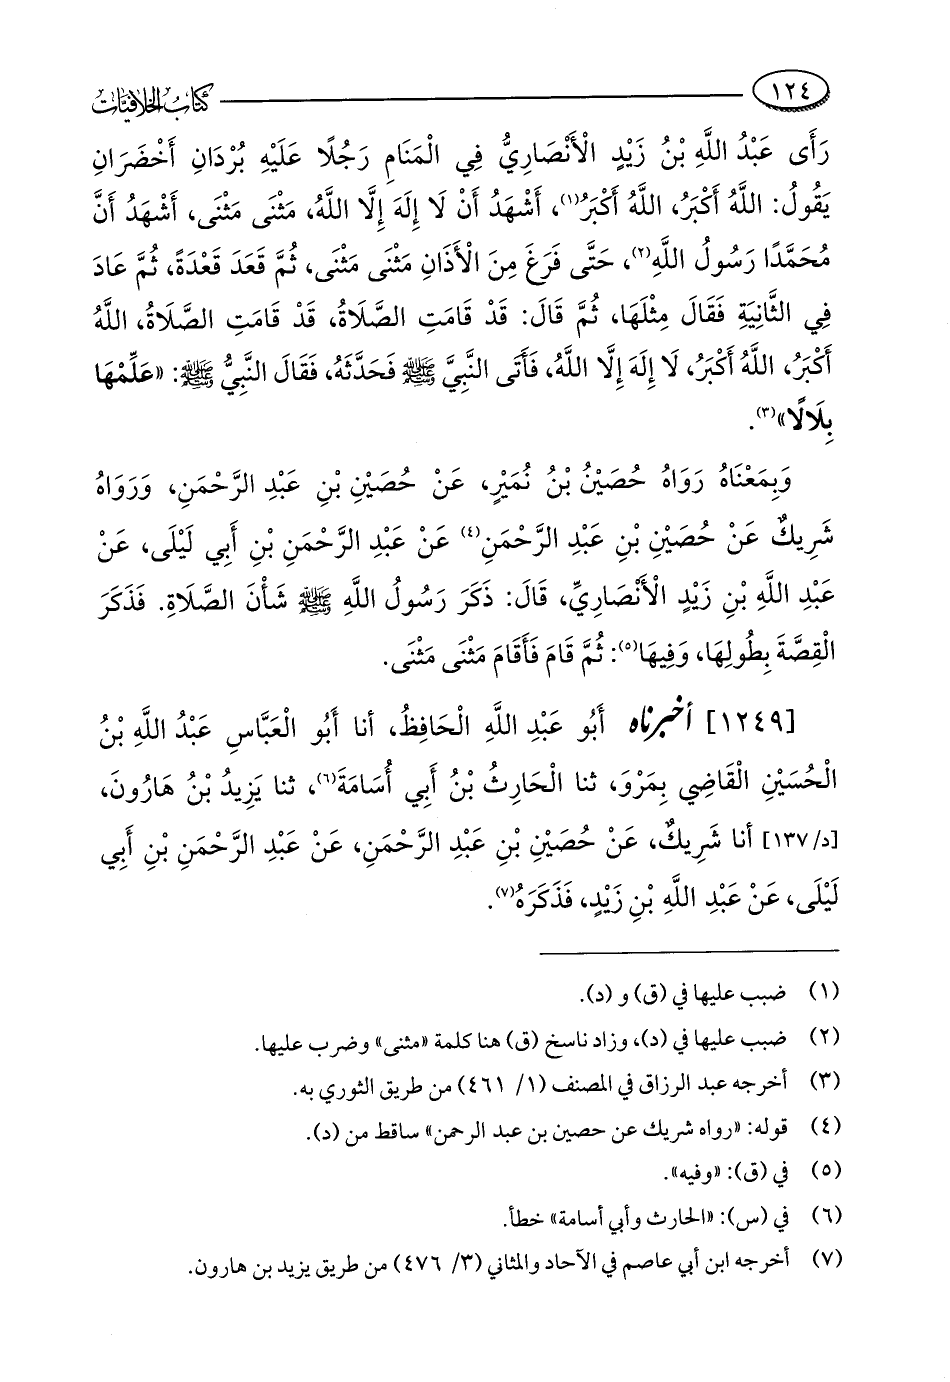 ١٢٤ كتاب الخلافيات
رَأَى عَبْدُ اللَّهِ بْنُ زَيْدٍ الْأَنْصَارِيُّ فِي الْمَنَامِ رَجُلًا عَلَيْهِ بُرْدَانِ أَخْضَرَانِ
يَقُولُ: اللَّهُ أَكْبَرُ، اللَّهُ أَكْبَرُ(١)، أَشْهَدُ أَنْ لَا إِلَهَ إِلَّا اللَّهُ، مَثْنَى مَثْنَى، أَشْهَدُ أَنَّ
مُحَمَّدًا رَسُولُ اللَّهِ(٢)، حَتَّى فَرَغَ مِنَ الْأَذَانِ مَثْنَى مَثْنَى، ثُمَّ قَعَدَ قَعْدَةً، ثُمَّ عَادَ
فِي الثَّانِيَةِ فَقَالَ مِثْلَهَا، ثُمَّ قَالَ: قَدْ قَامَتِ الصَّلَاةُ، قَدْ قَامَتِ الصَّلَاةُ، اللَّهُ
أَكْبَرُ، اللَّهُ أَكْبَرُ، لَا إِلَهَ إِلَّا اللَّهُ، فَأَتَى النَّبِيَّ ﷺ فَحَدَّثَهُ، فَقَالَ النَّبِيُّ ﷺ: «عَلِّمْهَا
بِلَالًا»(٣).
وَبِمَعْنَاهُ رَوَاهُ حُصَيْنُ بْنُ نُمَيْرٍ، عَنْ حُصَيْنِ بْنِ عَبْدِ الرَّحْمَنِ، وَرَوَاهُ
شَرِيكٌ عَنْ حُصَيْنِ بْنِ عَبْدِ الرَّحْمَنِ(٤) عَنْ عَبْدِ الرَّحْمَنِ بْنِ أَبِي لَيْلَى، عَنْ
عَبْدِ اللَّهِ بْنِ زَيْدٍ الْأَنْصَارِيِّ، قَالَ: ذَكَرَ رَسُولُ اللَّهِ ﷺ شَأْنَ الصَّلَاةِ. فَذَكَرَ
الْقِصَّةَ بِطُولِهَا، وَفِيهَا(٥): ثُمَّ قَامَ فَأَقَامَ مَثْنَى مَثْنَى.
[١٢٤٩] أخبرناه أَبُو عَبْدِ اللَّهِ الْحَافِظُ، أنا أَبُو الْعَبَّاسِ عَبْدُ اللَّهِ بْنُ
الْحُسَيْنِ الْقَاضِي بِمَرْوَ، ثنا الْحَارِثُ بْنُ أَبِي أُسَامَةَ(٦)، ثنا يَزِيدُ بْنُ هَارُونَ،
[د/١٣٧] أنا شَرِيكٌ، عَنْ حُصَيْنِ بْنِ عَبْدِ الرَّحْمَنِ، عَنْ عَبْدِ الرَّحْمَنِ بْنِ أَبِي
لَيْلَى، عَنْ عَبْدِ اللَّهِ بْنِ زَيْدٍ، فَذَكَرَهُ(٧).
(١) ضبب عليها في (ق) و (د).
(٢) ضبب عليها في (د)، وزاد ناسخ (ق) هنا كلمة «مثنى» وضرب عليها.
(٣) أخرجه عبد الرزاق في المصنف (١/ ٤٦١) من طريق الثوري به.
(٤) قوله: «رواه شريك عن حصين بن عبد الرحمن» ساقط من (د).
(٥) في (ق): «وفيه».
(٦) في (س): «الحارث وأبي أسامة» خطأ.
(٧) أخرجه ابن أبي عاصم في الآحاد والمثاني (٣/ ٤٧٦) من طريق يزيد بن هارون.